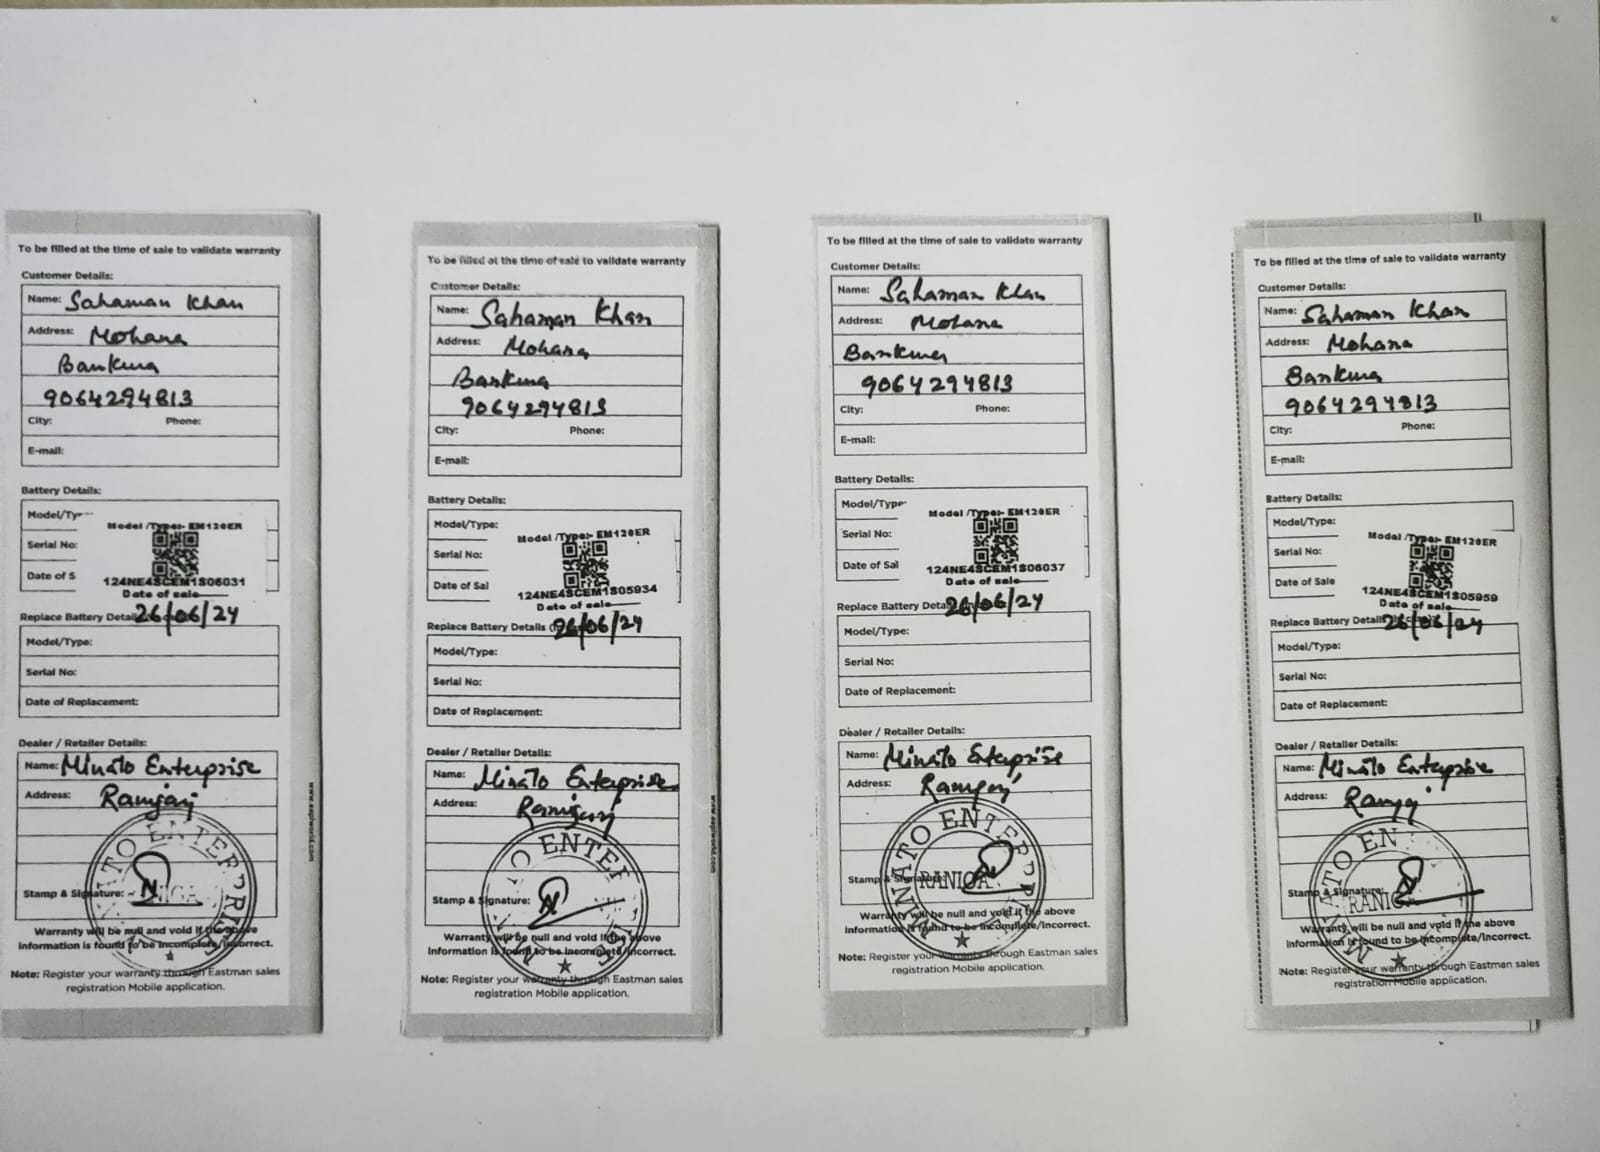 To be filled at the time of sale to validate warranty
Customer Details:
Name: Sahaman Khan
Address: Mohana
Bankura
9064294813
City: Phone:
E-mail:
Battery Details:
Model/Ty
Model /Type:- EM120ER
Serial No:
Date of S
124NE4SCEM1S06031
Date of sale
26/06/24
Replace Battery Detail
Model/Type:
Serial No:
Date of Replacement:
Dealer / Retailer Details:
Name: Minato Enterprise
Address: Raniganj
Stamp & Signature:
Warranty will be null and void if the above
information is found to be incomplete/incorrect.
Note: Register your warranty through Eastman sales
registration Mobile application.
www.eaplworld.com
To be filled at the time of sale to validate warranty
Customer Details:
Name: Sahaman Khan
Address: Mohana
Bankura
9064294813
City: Phone:
E-mail:
Battery Details:
Model/Type:
Model /Type:- EM120ER
Serial No:
Date of Sal
124NE4SCEM1S05934
Date of sale
26/06/24
Replace Battery Details
Model/Type:
Serial No:
Date of Replacement:
Dealer / Retailer Details:
Name: Minato Enterprise
Address: Raniganj
Stamp & Signature:
Warranty will be null and void if the above
information is found to be incomplete/incorrect.
Note: Register your warranty through Eastman sales
registration Mobile application.
www.eaplworld.com
To be filled at the time of sale to validate warranty
Customer Details:
Name: Sahaman Khan
Address: Mohana
Bankura
9064294813
City: Phone:
E-mail:
Battery Details:
Model/Type
Model /Type:- EM120ER
Serial No:
Date of Sal
124NE4SCEM1S06037
Date of sale
26/06/24
Replace Battery Detai
Model/Type:
Serial No:
Date of Replacement:
Dealer / Retailer Details:
Name: Minato Enterprise
Address: Raniganj
MINATO ENTERPRISE
Stamp & Signature:
Warranty will be null and void if the above
information is found to be incomplete/incorrect.
Note: Register your warranty through Eastman sales
registration Mobile application.
To be filled at the time of sale to validate warranty
Customer Details:
Name: Sahaman Khan
Address: Mohana
Bankura
9064294813
City: Phone:
E-mail:
Battery Details:
Model/Type:
Model /Type:- EM120ER
Serial No:
Date of Sale
124NE4SCEM1S05959
Date of sale
26/06/24
Replace Battery Details
Model/Type:
Serial No:
Date of Replacement:
Dealer / Retailer Details:
Name: Minato Enterprise
Address:
Stamp & Signature:
Warranty will be null and void if the above
information is found to be incomplete/incorrect.
Note: Register your warranty through Eastman sales
registration Mobile application.